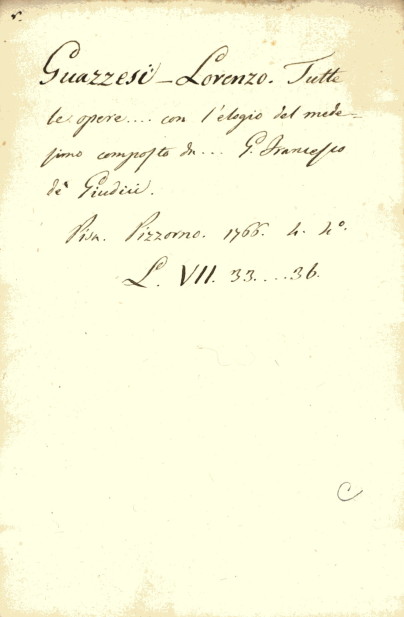 v.
Guazzesi - Lorenzo. Tutte
le opere.... con l'elogio del mede=
simo composto da... G. Francesco
de' Giudici.
Pisa. Pizzorno. 1766. 4. 4°.
L. VII. 33....36.
C